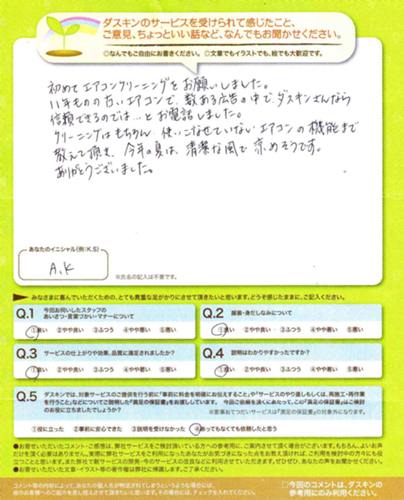 ダスキンのサービスを受けられて感じたこと、
ご意見、ちょっといい話など、なんでもお聞かせください。
◎なんでもご自由にお書きください。◎文章でもイラストでも、絵でも大歓迎です。
初めてエアコンクリーニングをお願いしました。
11年ものの古いエアコンで、数ある広告の中で、ダスキンさんなら
信頼できるのでは…とお電話しました。
クリーニングはもちろん、使いこなせていないエアコンの機能まで
教えて頂き、今年の夏は、清潔な風で涼めそうです。
ありがとうございました。
あなたのイニシャル(例:K.S)
A.K
※氏名の記入は不要です。
みなさまに喜んでいただくための、とても貴重な足がかりにさせて頂きたいと思います。どうぞ感じたままに、ご記入ください。
Q.1 今回お伺いしたスタッフの
あいさつ・言葉づかい・マナーについて
①良い ②やや良い ③ふつう ④やや悪い ⑤悪い
Q.2 服装・身だしなみについて
①良い ②やや良い ③ふつう ④やや悪い ⑤悪い
Q.3 サービスの仕上がりや効果、品質に満足されましたか?
①良い ②やや良い ③ふつう ④やや悪い ⑤悪い
Q.4 説明はわかりやすかったですか?
①良い ②やや良い ③ふつう ④やや悪い ⑤悪い
Q.5 ダスキンでは、対象サービスのご提供を行う前に「事前に料金を明確にお伝えすること」や「サービスのやり直しもしくは、再施工・再作業
を行うこと」などについてご説明した「満足の保証書」をお渡ししています。 今回ご依頼を頂くにあたって、この「満足の保証書」はご検討
のお役に立ちましたでしょうか?
①役に立った ②事前に見ていない ③説明を受けなかった ④あってもなくても依頼したと思う